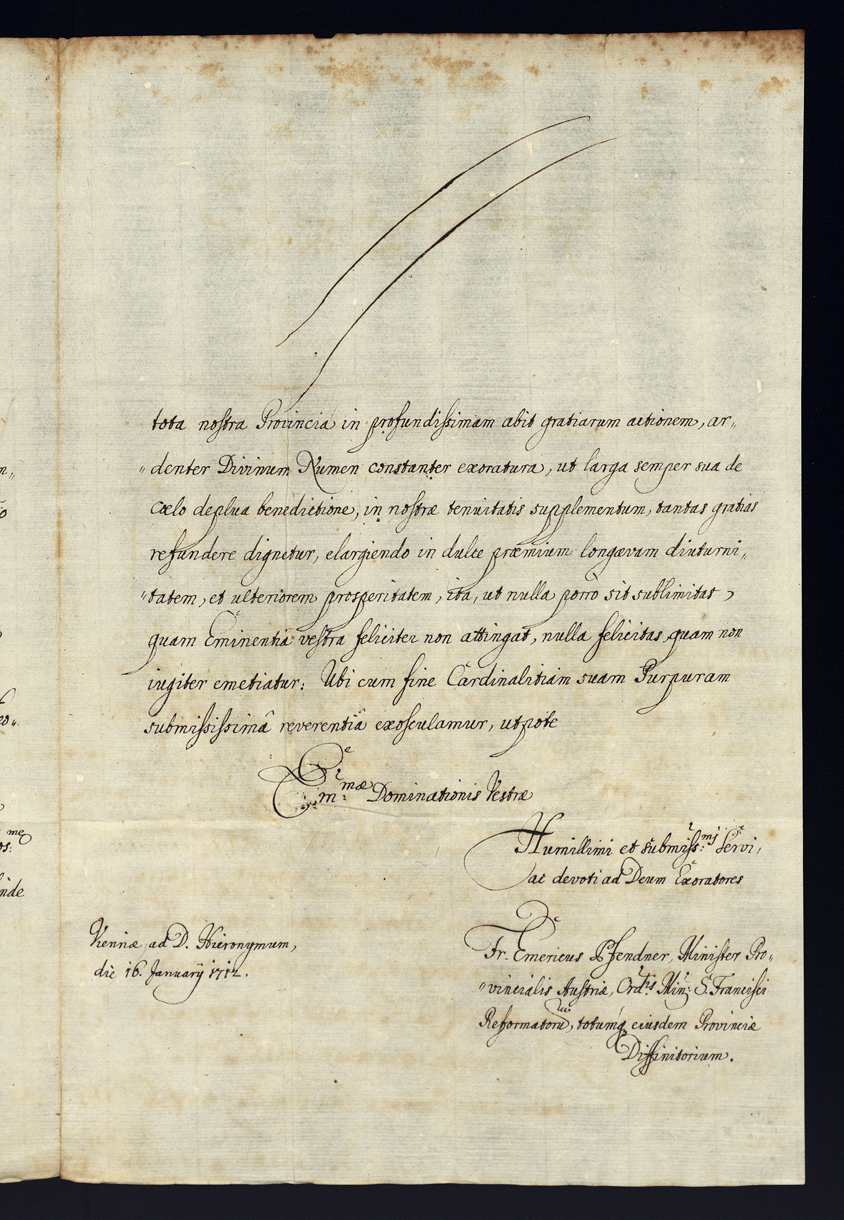 tota nostra Provincia in profundissimam abit gratiarum actionem, ar„
„denter Divinum Numen constanter exoratura, ut larga semper sua de
cœlo deplua benedictione, in nostræ tenuitatis supplementum, tantas gratias
refundere dignetur, elargiendo in dulce præmium longævam diuturni„
„tatem, et ulteriorem prosperitatem, ita, ut nulla porrò sit sublimitas,
quam Eminentia vestra feliciter non attingat, nulla felicitas, quam non
iugiter emetiatur: Ubi cum fine Cardinalitiam suam Purpuram
submississimâ reverentiâ exosculamur, utpote
Em:mæ Dominationis Vestræ
Humillimi et submiss:mj Servi,
ac devoti ad Deum Exoratores
Viennæ ad D. Hieronymum,
die 16. Januarÿ 1712.
Fr. Emericus Pfendner, Minister Pro„
„vincialis Austriæ, Ord:is Min: S. Francisci
Reformatorū, totumq ejusdem Provinciæ
Diffinitorium.